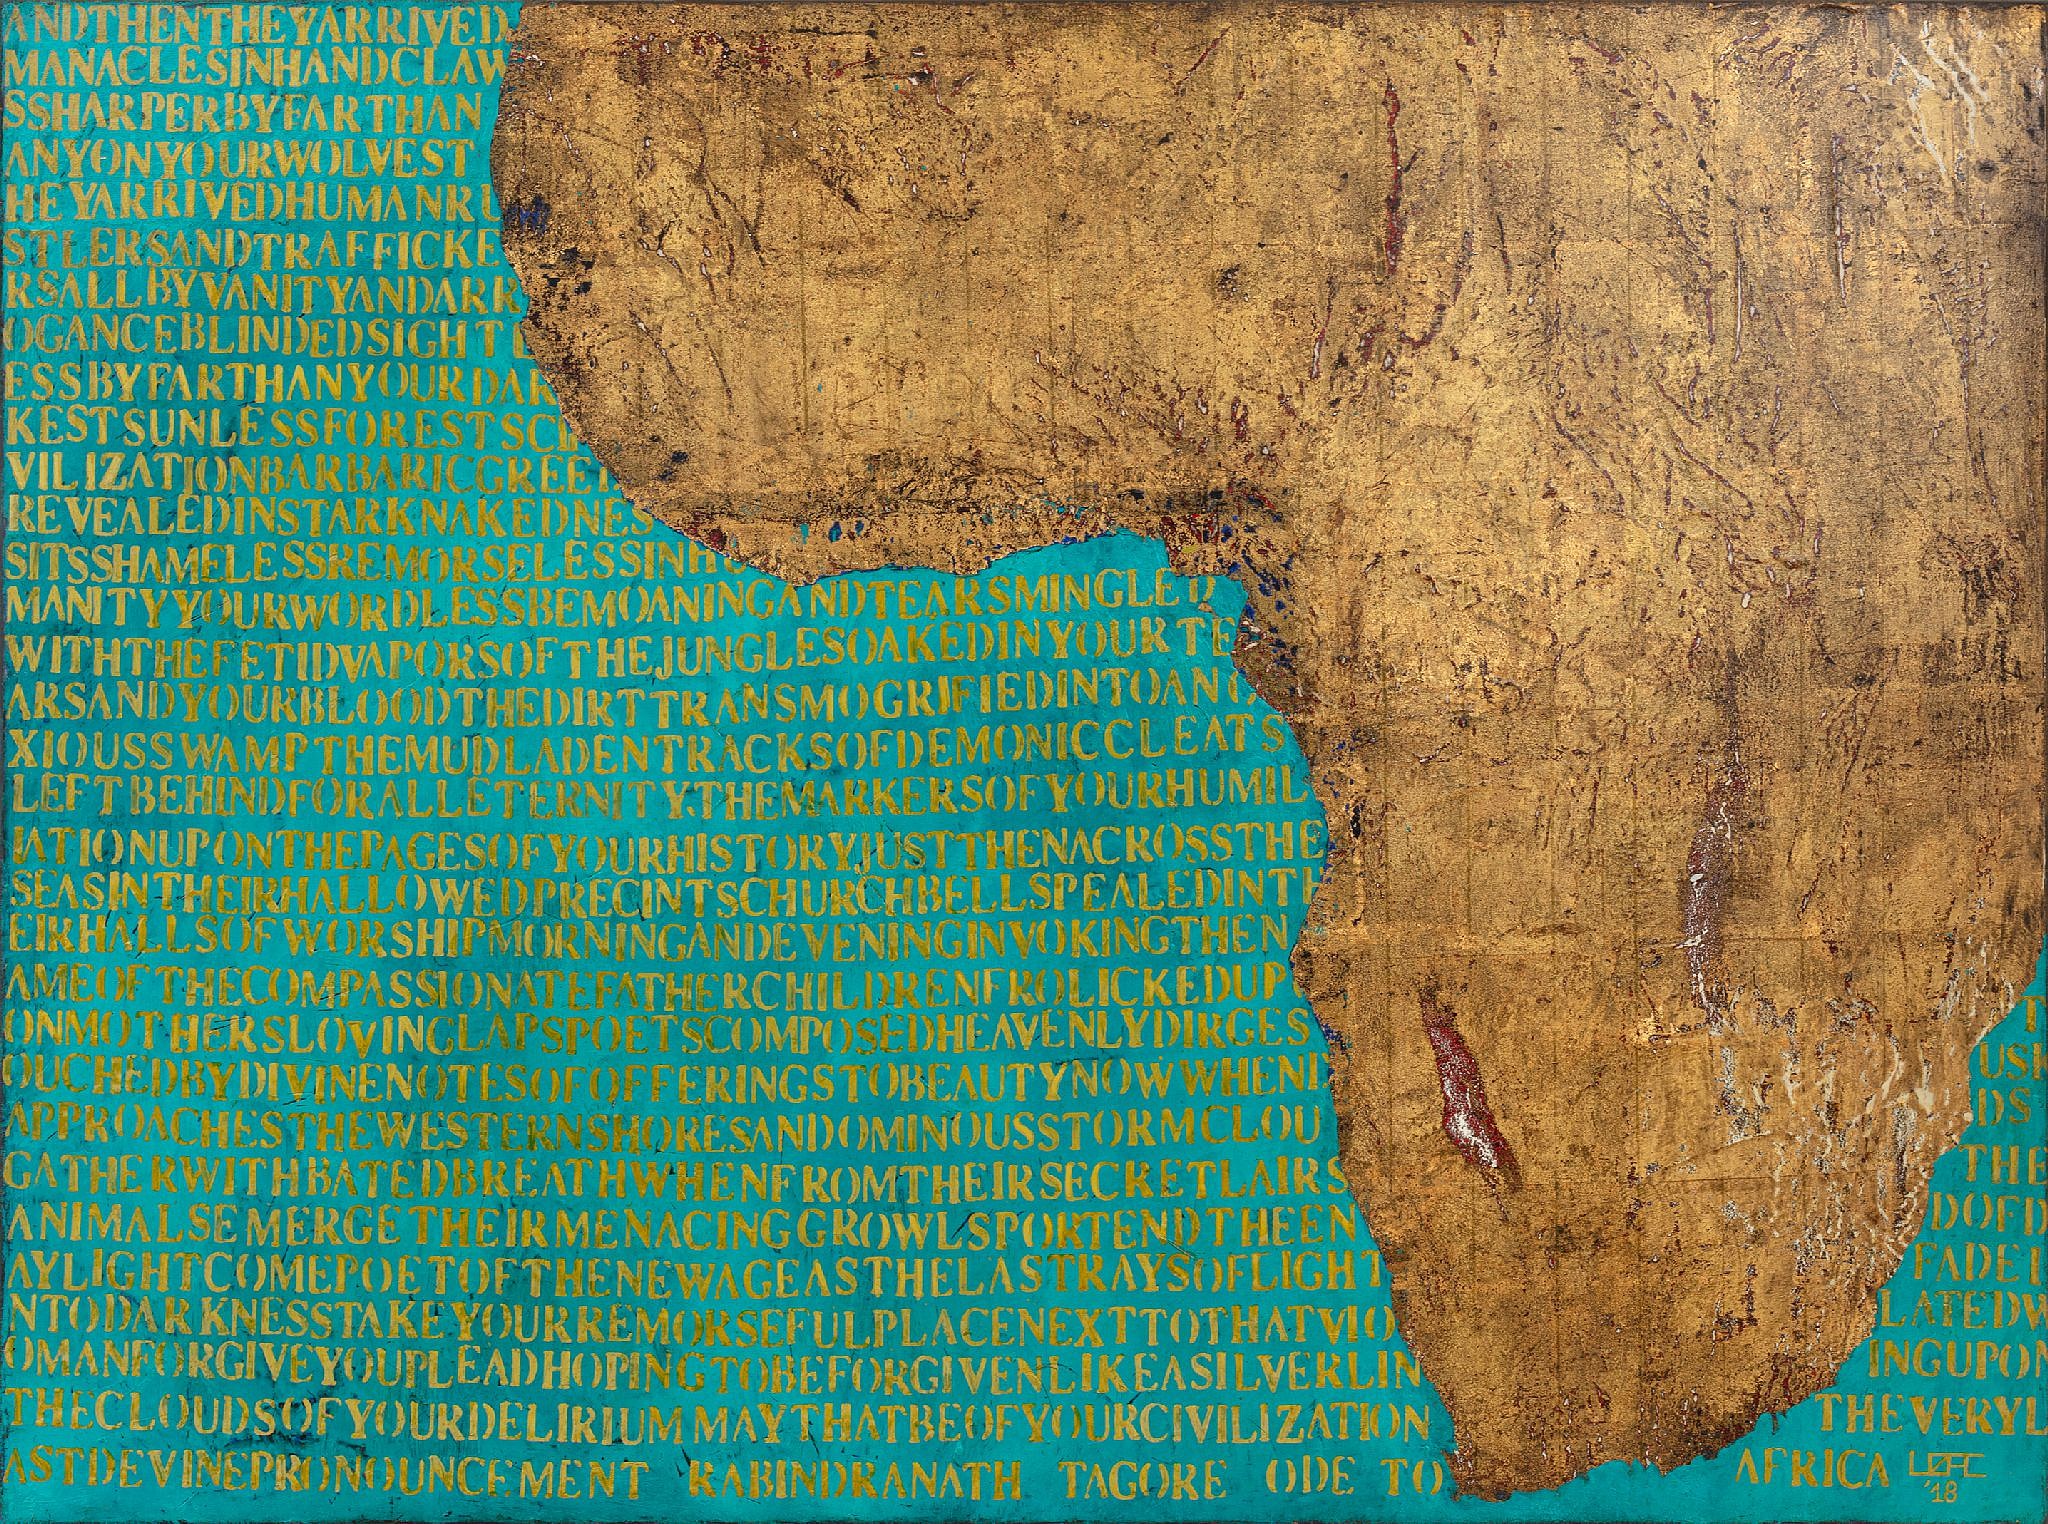 ANDTHENTHEYARRIVED
MANACLESINHANDCLAW
SSHARPERBYFARTHAN
ANYONYOURWOLVEST
HEYARRIVEDHUMANRU
STLERSANDTRAFFICKE
RSALLBYVANITYANDARR
OGANCEBLINDEDSIGHTL
ESSBYFARTHANYOURDAR
KESTSUNLESSFORESTSCI
VILIZATIONBARBARICGREET
REVEALEDINSTARKNAKEDNES
SITSSHAMELESSREMORSELESSINHU
MANITYYOURWORDLESSBEMOANINGANDTEARSMINGLED
WITHTHEFETIDVAPORSOFTHEJUNGLESOAKEDINYOURTE
ARSANDYOURBLOODTHEDIRTTRANSMOGRIFIEDINTOANO
XIOUSSWAMPTHEMUDLADENTRACKSOFDEMONICCLEATS
LEFTBEHINDFORALLETERNITY,THEMARKERSOFYOURHUMIL
IATIONUPONTHEPAGESOFYOURHISTORY,JUSTTHENACROSSTHE
SEASINTHEIRHALLOWEDPRECINTSCHURCHBELLSPEALEDINTH
EIRHALLSOFWORSHIPMORNINGANDEVENINGINVOKINGTHEN
AMEOFTHECOMPASSIONATEFATHERCHILDRENFROLICKEDUP
ONMOTHERSLOVINGLAPSPOETSCOMPOSEDHEAVENLYDIRGES T
OUCHEDBYDIVINENOTESOFOFFERINGSTOBEAUTYNOWWHEND USK
APPROACHESTHEWESTERNSHORESANDOMINOUSSTORMCLOU DS
GATHERWITHBATEDBREATHWHENFROMTHEIRSECRETLAIRS THE
ANIMALSEMERGETHEIRMENACINGGROWLSPORTENDTHEEN DOFD
AYLIGHTCOMEPOETOFTHENEWAGEASTHELASTRAYSOFLIGHT FADEI
NTODARKNESSTAKEYOURREMORSEFULPLACENEXTTOTHATVIO LATEDW
OMANFORGIVEYOUPLEADHOPINGTOBEFORGIVENLIKEASILVERLIN INGUPON
THECLOUDSOFYOURDELIRIUMMAYTHATBEOFYOURCIVILIZATION THEVERYL
ASTDEVINEPRONOUNCEMENT RABINDRANATH TAGORE ODE TO AFRICA
'18